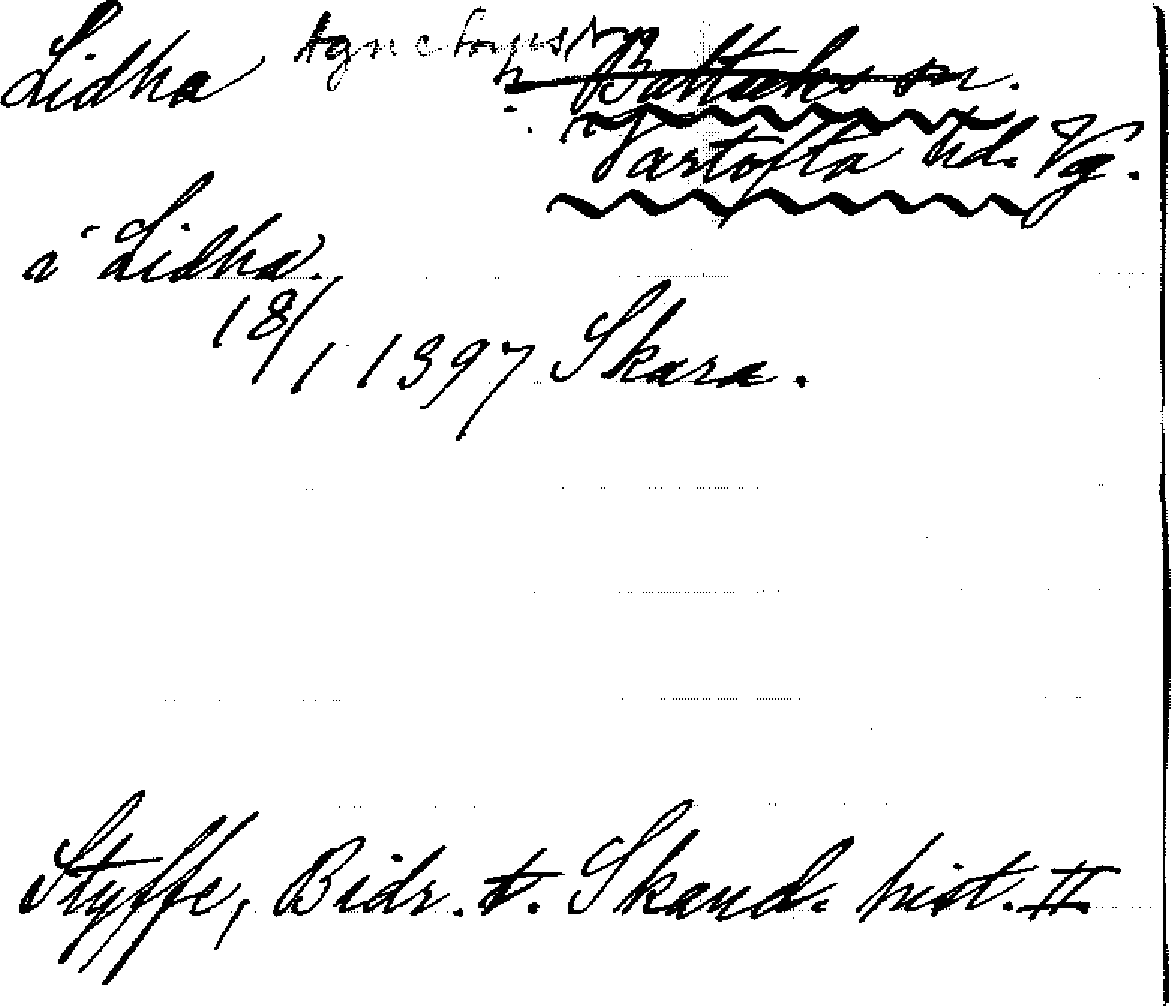 Lidha Agnetorps Baltaks sn.
Vartofta hd. Vg.
i Lidha.
18/1 1397 Skara.
Styffe, Bidr. t. Skand. hist. II.